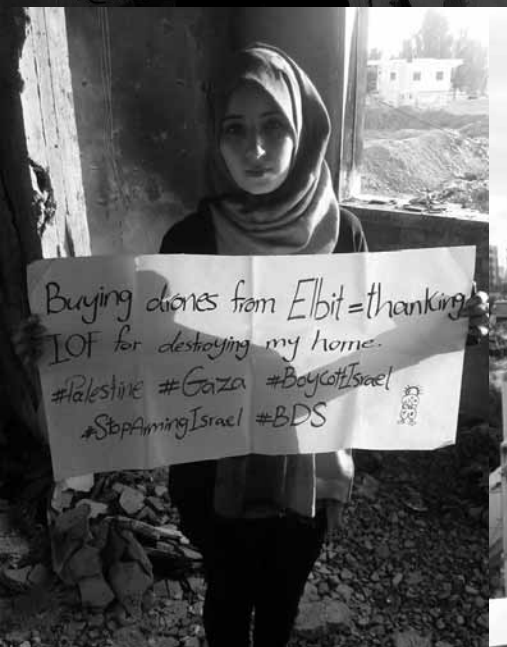 Buying drones from Elbit = thanking
IOF for destroying my home.
#Palestine #Gaza #BoycottIsrael
#StopArmingIsrael #BDS